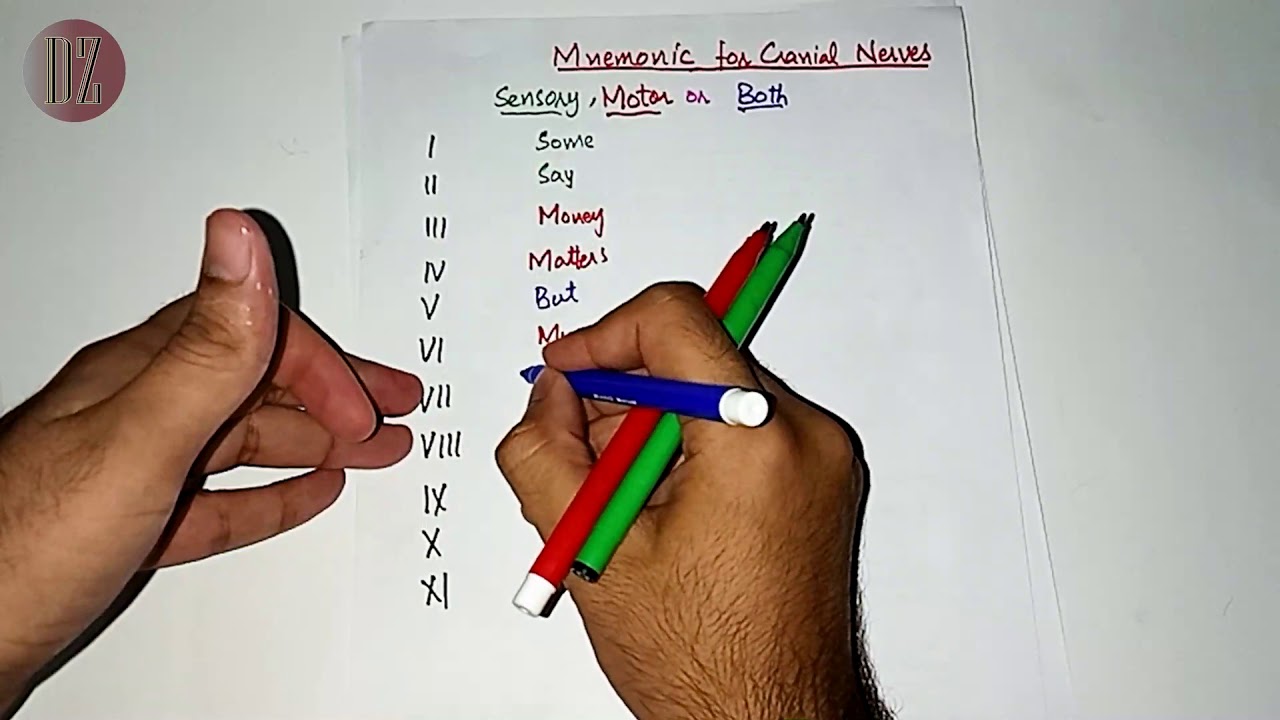 DZ
Mnemonic for Cranial Nerves
Sensory, Motor or Both
I Some
II Say
III Money
IV Matters
V But
VI
VII
VIII
IX
X
XI